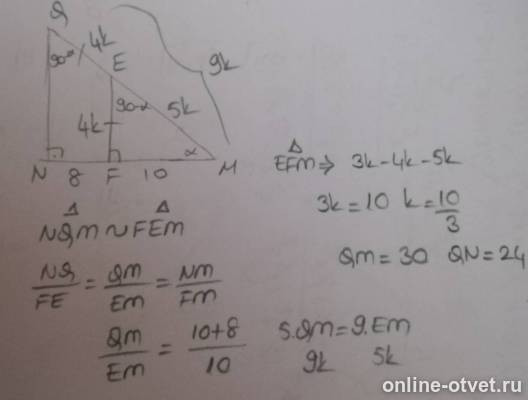 Q
90-α 4k
E
9k
90-α 5k
4k
α
N 8 F 10 M
EFM ⇒ 3k-4k-5k
3k=10 k=10/3
QM=30 QN=24
NQM ~ FEM
NQ/FE = QM/EM = NM/FM
QM/EM = 10+8/10
5.QM=9.EM
9k 5k
online-otvet.ru